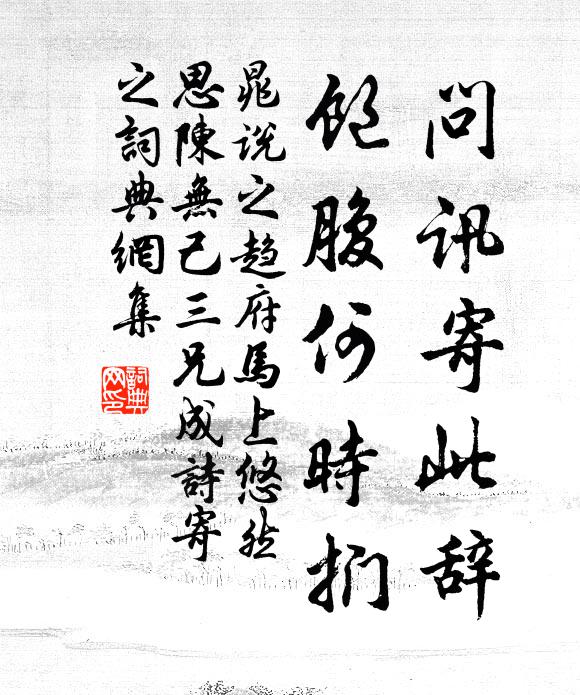 問訊寄此辞
飽腹何時捫
晁说之趙府馬上悠然
思陳無己三兄成詩寄
之詞典網集
詞典
网印